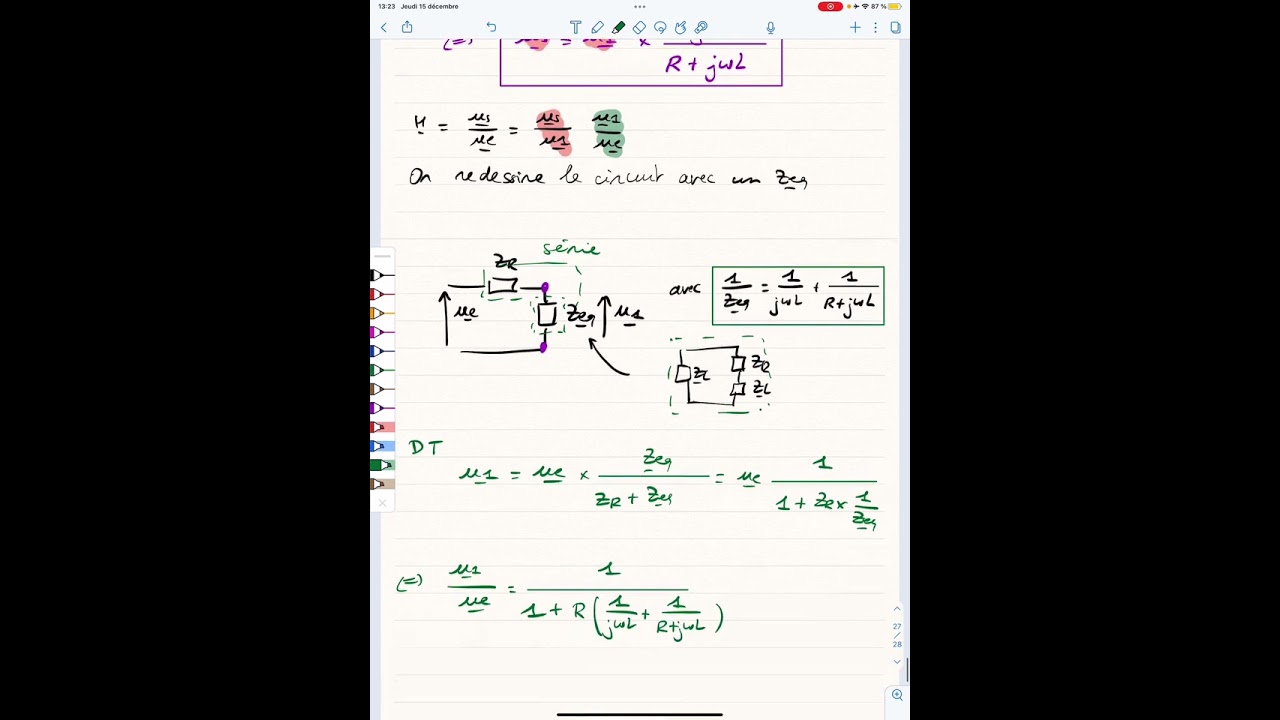 13:23 Jeudi 15 décembre 87 %
R + jωL
H = us/ue = us/u1 u1/ue
On redessine le circuit avec un Zeq
série
ZR
ue
Zeq
u1
avec 1/Zeq = 1/jωL + 1/R+jωL
ZL
ZR
ZL
DT
u1 = ue × Zeq/ZR + Zeq = ue 1/1 + ZR × 1/Zeq
(=) u1/ue = 1/1 + R (1/jωL + 1/R+jωL)
27
/
28